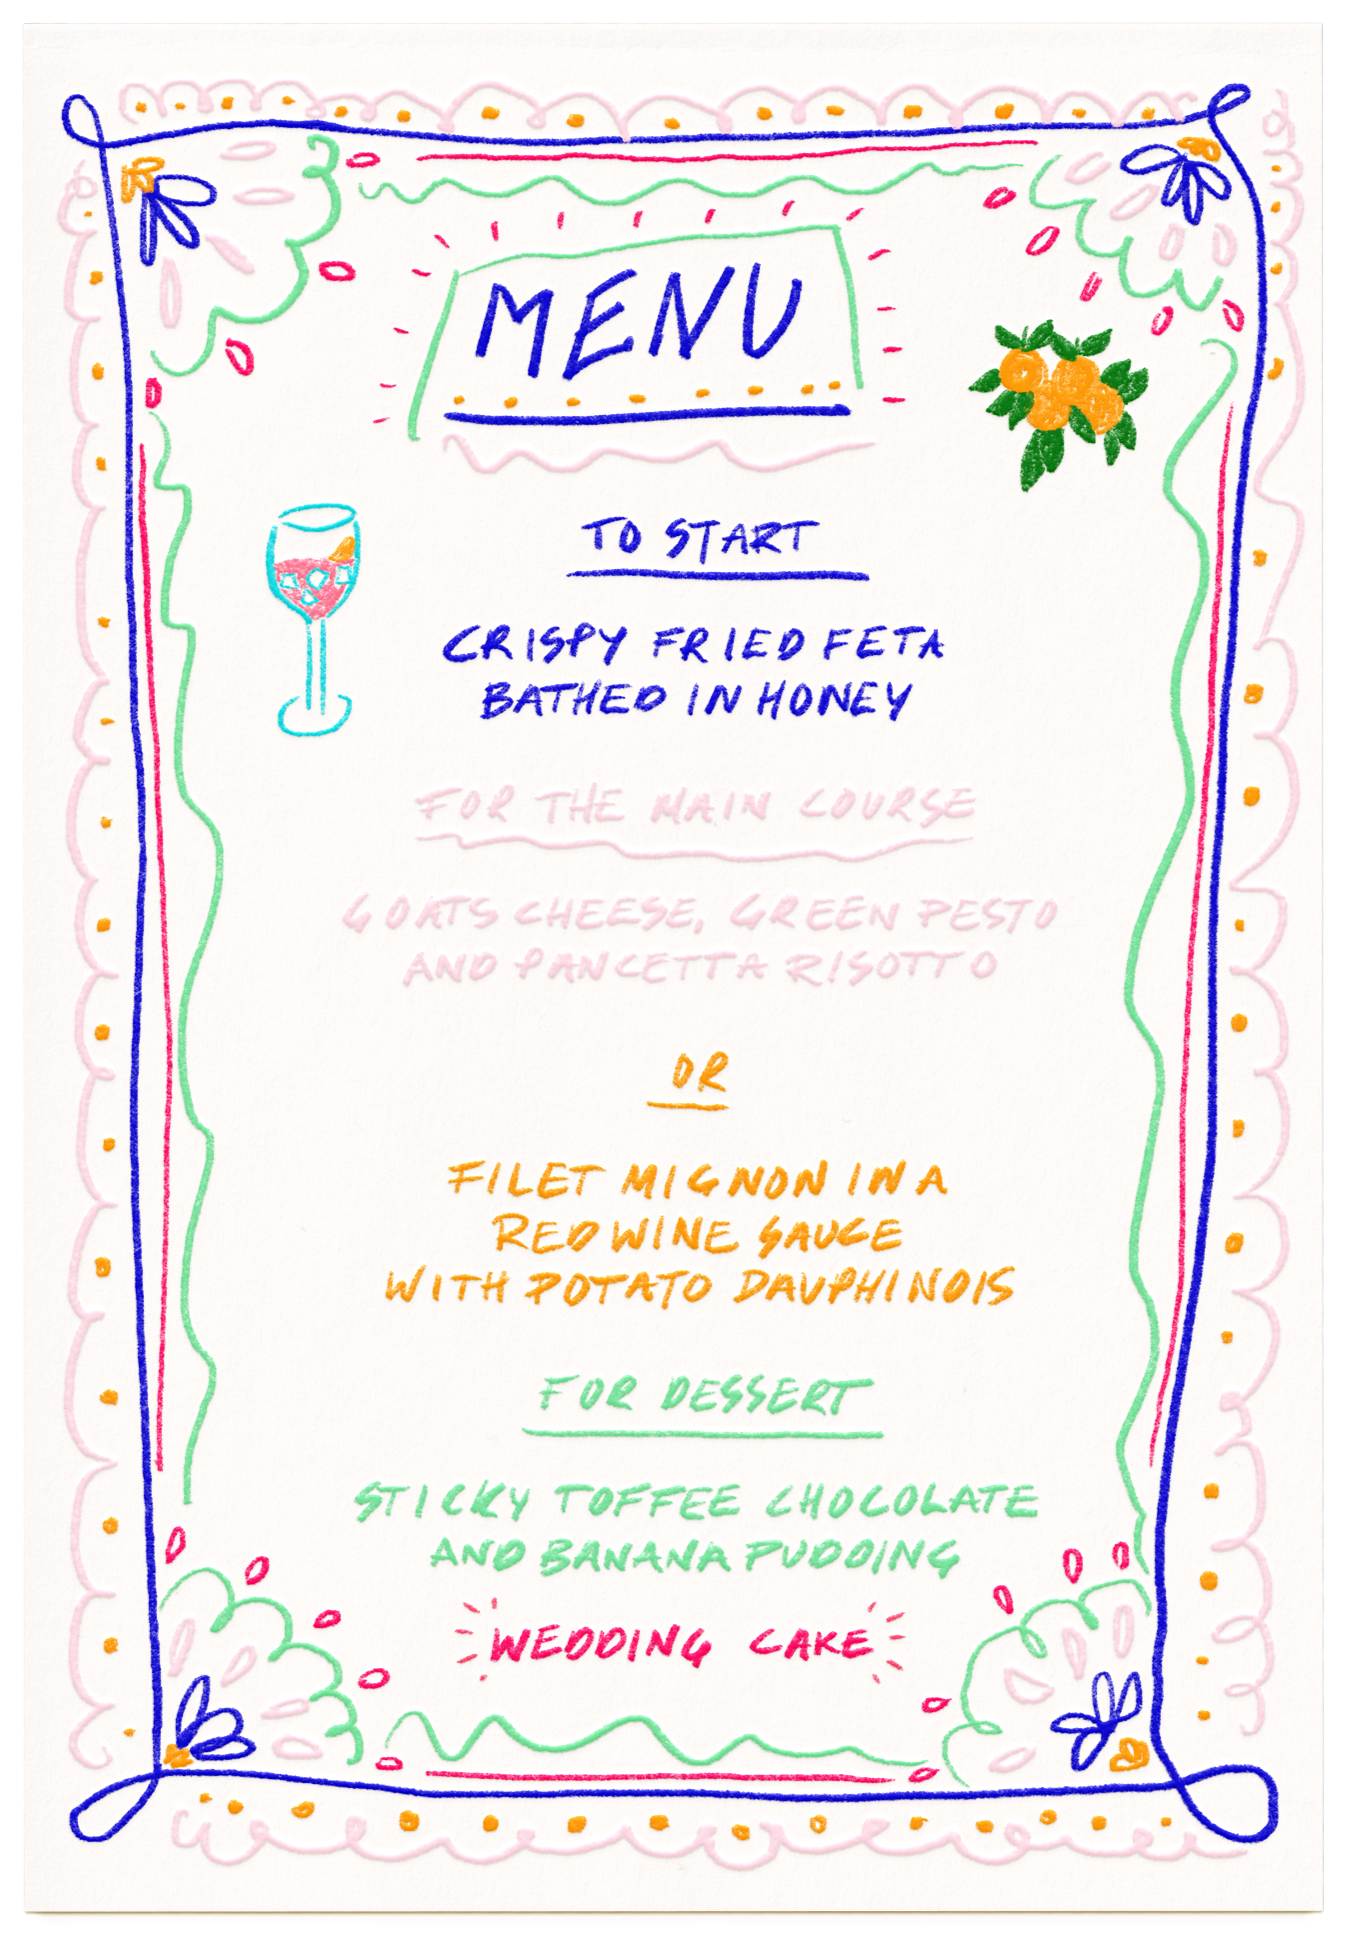 MENU
TO START
CRISPY FRIED FETA
BATHED IN HONEY
FOR THE MAIN COURSE
GOATS CHEESE, GREEN PESTO
AND PANCETTA RISOTTO
OR
FILET MIGNON IN A
RED WINE SAUCE
WITH POTATO DAUPHINOIS
FOR DESSERT
STICKY TOFFEE CHOCOLATE
AND BANANA PUDDING
WEDDING CAKE